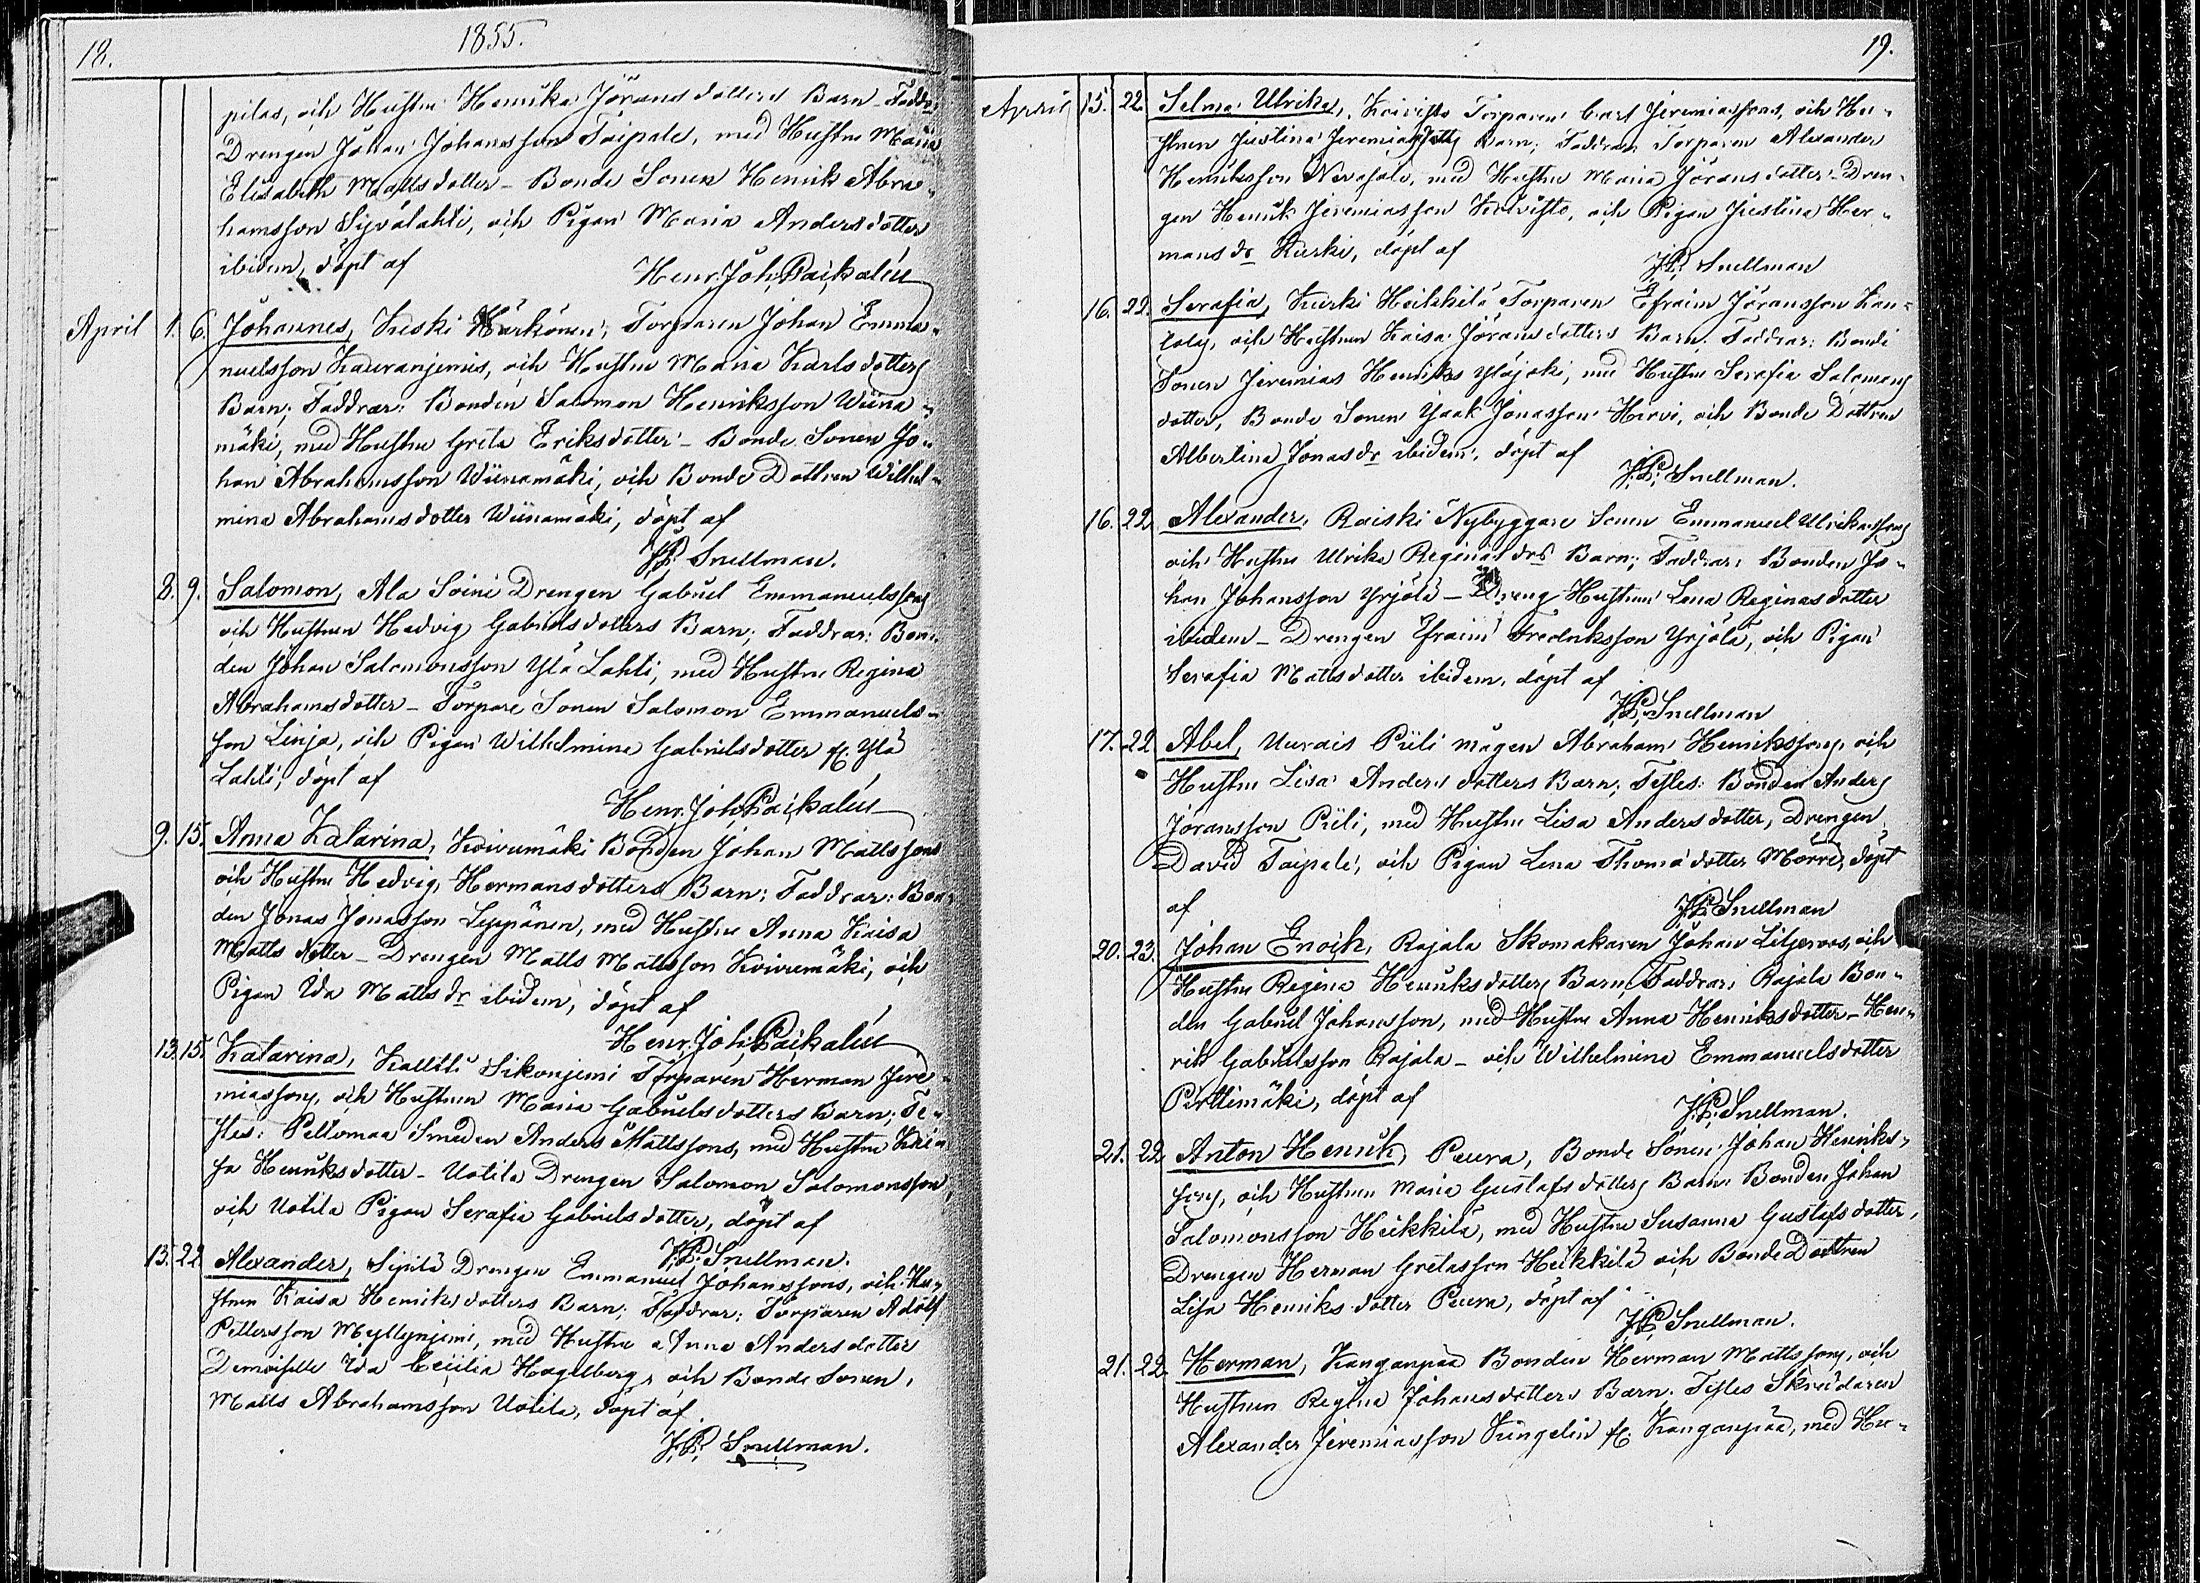 18.
1855.
pilas, och Hustru Henrika Jörans dotters Barn. Faddr:
Drengen Johan Johansson Taipale, med Hustru Maria
Elisabeth Matts dotter - Bonde Sonen Henrik Abra-
hamsson Syvälahti, och Pigan Maria Anders dotter
ibidem, döpt af
Henr. Joh. Paikalén
April 1. 6. Johannes, Kuski Härkönen, Torparen Johan Emma-
nuelsson Kauranjemis, och Hustru Maria Karls dotters
Barn; Faddrar: Bonden Salomon Henriksson Wiina-
mäki, med Hustru Greta Eriksdotter - Bonde Sonen Jo-
han Abrahamsson Wiinamäki, och Bonde Dottren Wilhel-
mina Abrahams dotter Wiinamäki, döpt af
J. P. Snellman.
8. 9. Salomon, Ala Soini Drengen Gabriel Emmanuelssons
och Hustrun Hedvig Gabrielsdotters Barn; Faddrar: Bon-
den Johan Salomonsson Ylä Lahti, med Hustru Regina
Abrahamsdotter - Torpare Sonen Salomon Emmanuels-
son Linja, och Pigan Wilhelmina Gabrielsdotter fr. Ylä
Lahti, döpt af
Henr. Joh. Paikalén
9. 15. Anna Katarina, Koivumäki Bonden Johan Mattssons
och Hustru Hedvig Hermansdotters Barn; Faddrar: Bon-
den Jonas Jonasson Leppänen, med Hustru Anna Kaisa
Matts dotter - Drengen Matts Mattsson Koivumäki, och
Pigan Ida Matts dr ibidem, döpt af
Henr. Joh. Paikalén
13. 15. Katarina, Kalltli Sikonjemi Torparen Herman Jere-
miassons, och Hustrun Maria Gabrielsdotters Barn; Te-
stes: Peltomaa Smeden Anders Mattssons, med Hustru Kai-
sa Henriksdotter - Uotila Drengen Salomon Salomonsson,
och Uotila Pigan Serafia Gabrielsdotter, döpt af
J. P. Snellman.
15. 22. Alexander, Sipilä Drengen Emmanuel Johanssons, och Hu-
strun Kaisa Henriks dotters Barn; Faddrar: Torparen Adolf
Pettersson Myllynjemi, med Hustru Anna Andersdotter
Demoiselle Ida Cecilia Hagelberg, och Bonde Sonen,
Matts Abrahamsson Uotila, döpt af
J. P. Snellman.
19.
April 15. 22. Selma Ulrika, Koivisto Torparen Carl Jeremiassons, och Hu-
strun Justina Jeremiasdotters Barn; Faddrar: Torparen Alexander
Henriksson Nevasalo, med Hustru Maria Jörans dotter - Dren-
gen Henrik Jeremiasson Koivisto, och Pigan Justina Her-
mans dr Kuski, döpt af
J. P. Snellman
16. 22. Serafia, Kurki Heikkilä Torparen Efraim Jöransson Kan-
tolas, och Hustrun Kaisa Jöransdotters Barn. Faddrar: Bonde
Sonen Jeremias Henriks Yläjoki, med Hustru Serafia Salomons
dotter, Bonde Sonen Isaak Jonasson Hirvi, och Bonde Dottren
Albertina Jonas dr ibidem, döpt af
J. P. Snellman.
16. 22. Alexander, Raiski Nybyggare Sonen Emmanuel Ulrikassons
och Hustru Ulrika Reginas drs Barn; Faddrar: Bonden Jo-
han Johansson Yrjölä - Dreng Hustrun Lena Reginasdotter
ibidem - Drengen Efraim Fredriksson Yrjölä, och Pigan
Serafia Mattsdotter ibidem, döpt af
J. P. Snellman
17. 22. Abel, Uurais Piili mågen Abraham Henrikssons, och
Hustru Lisa Anders dotters Barn; Testes: Bonden Anders
Jöransson Piili, med Hustru Lisa Andersdotter, Drengen
David Taipale, och Pigan Lena Thomä dotter Mörri, döpt
af
J. P. Snellman
20. 23. Johan Enoch, Rajala Skomakaren Johan Liljeroos, och
Hustru Regina Henriksdotters Barn, Faddrar: Rajala Bon-
den Gabriel Johansson, med Hustru Anna Henriksdotter - Hen-
rik Gabrielsson Rajala - och Wilhelmina Emmanuelsdotter
Pirttimäki, döpt af
J. P. Snellman.
21. 22. Anton Henrik, Peura, Bonde Sonen Johan Henriks-
sons, och Hustrun Maria Gustafsdotters Barn. Bonden Johan
Salomonsson Heikkilä, med Hustru Susanna Gustafsdotter,
Drengen Herman Gretasson Heikkilä och Bonde Dottren
Lisa Henriks dotter Peura, döpt af
J. P. Snellman.
21. 22. Herman, Kanganpää Bonden Herman Mattssons, och
Hustrun Regina Johansdotters Barn. Testes Skräddaren
Alexander Jeremiasson Kungelin fr. Kanganpää, med Hu-